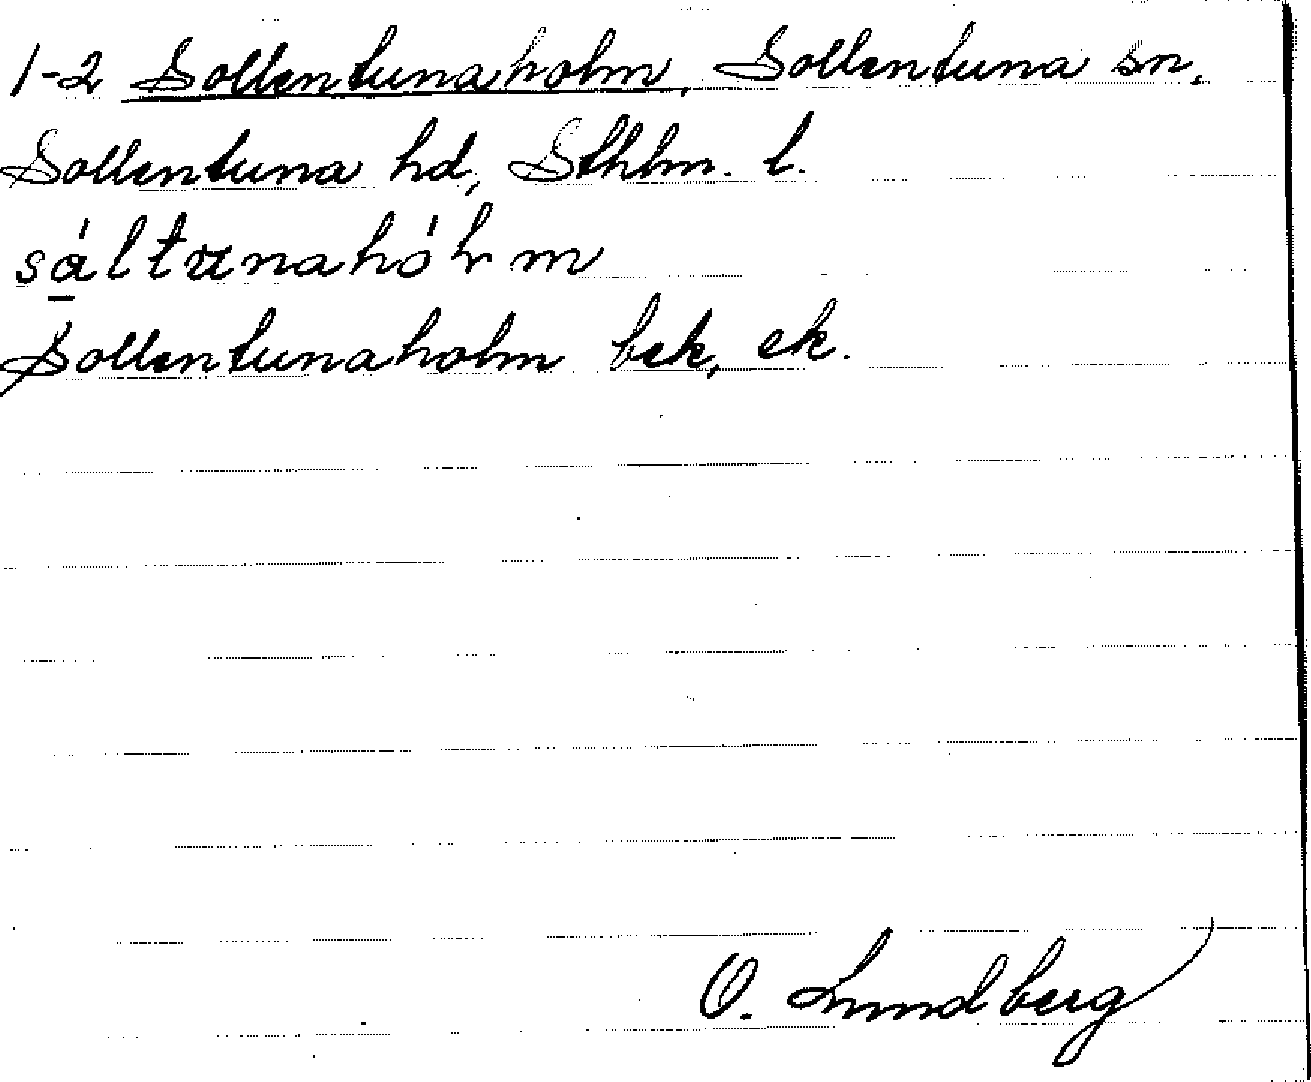 1-2 Sollentunaholm, Sollentuna sn,
Sollentuna hd, Sthlm. l.
sáltunahólm
Sollentunaholm bek, ek.
O. Lundberg